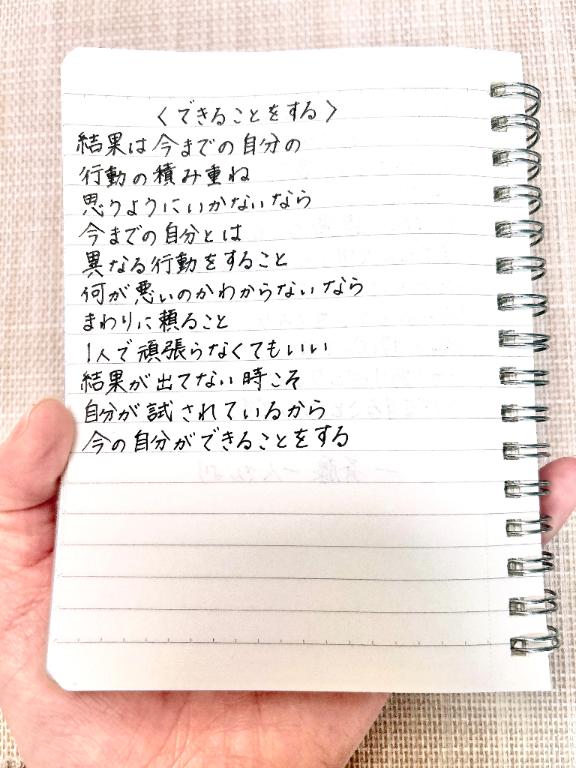 〈できることをする〉
結果は今までの自分の
行動の積み重ね
思うようにいかないなら
今までの自分とは
異なる行動をすること
何が悪いのかわからないなら
まわりに頼ること
1人で頑張らなくてもいい
結果が出てない時こそ
自分が試されているから
今の自分ができることをする